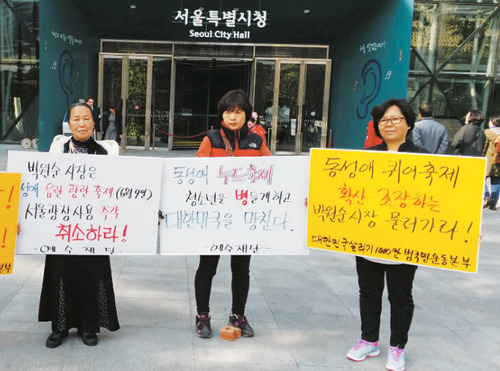 서울특별시청
Seoul City Hall
박원순 시장은
성애 음란 광란 축제 (6월9일)
서울광장사용 즉각
취소하라!
-예수재단-
동성애 누드축제
청소년을 병들게하고
대한민국을 망친다.
-예수재단-
동성애 퀴어축제
확산 조장하는
박원순시장 물러가라!
대한민국살리기 1000만 범국민운동본부
!
부